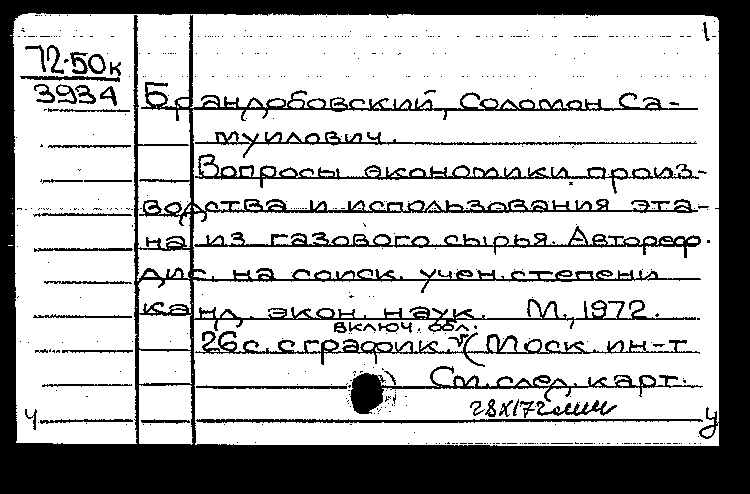 1
72-50к
3934
Брандобовский, Соломон Са-
муилович.
Вопросы экономики произ-
водства и использования эта-
на из газового сырья. Автореф.
дис. на соиск. учен. степени
канд. экон. наук. М., 1972.
включ. обл.
26 с. с график. (Моск. ин-т
См. след. карт.
28х172 мм
ч у